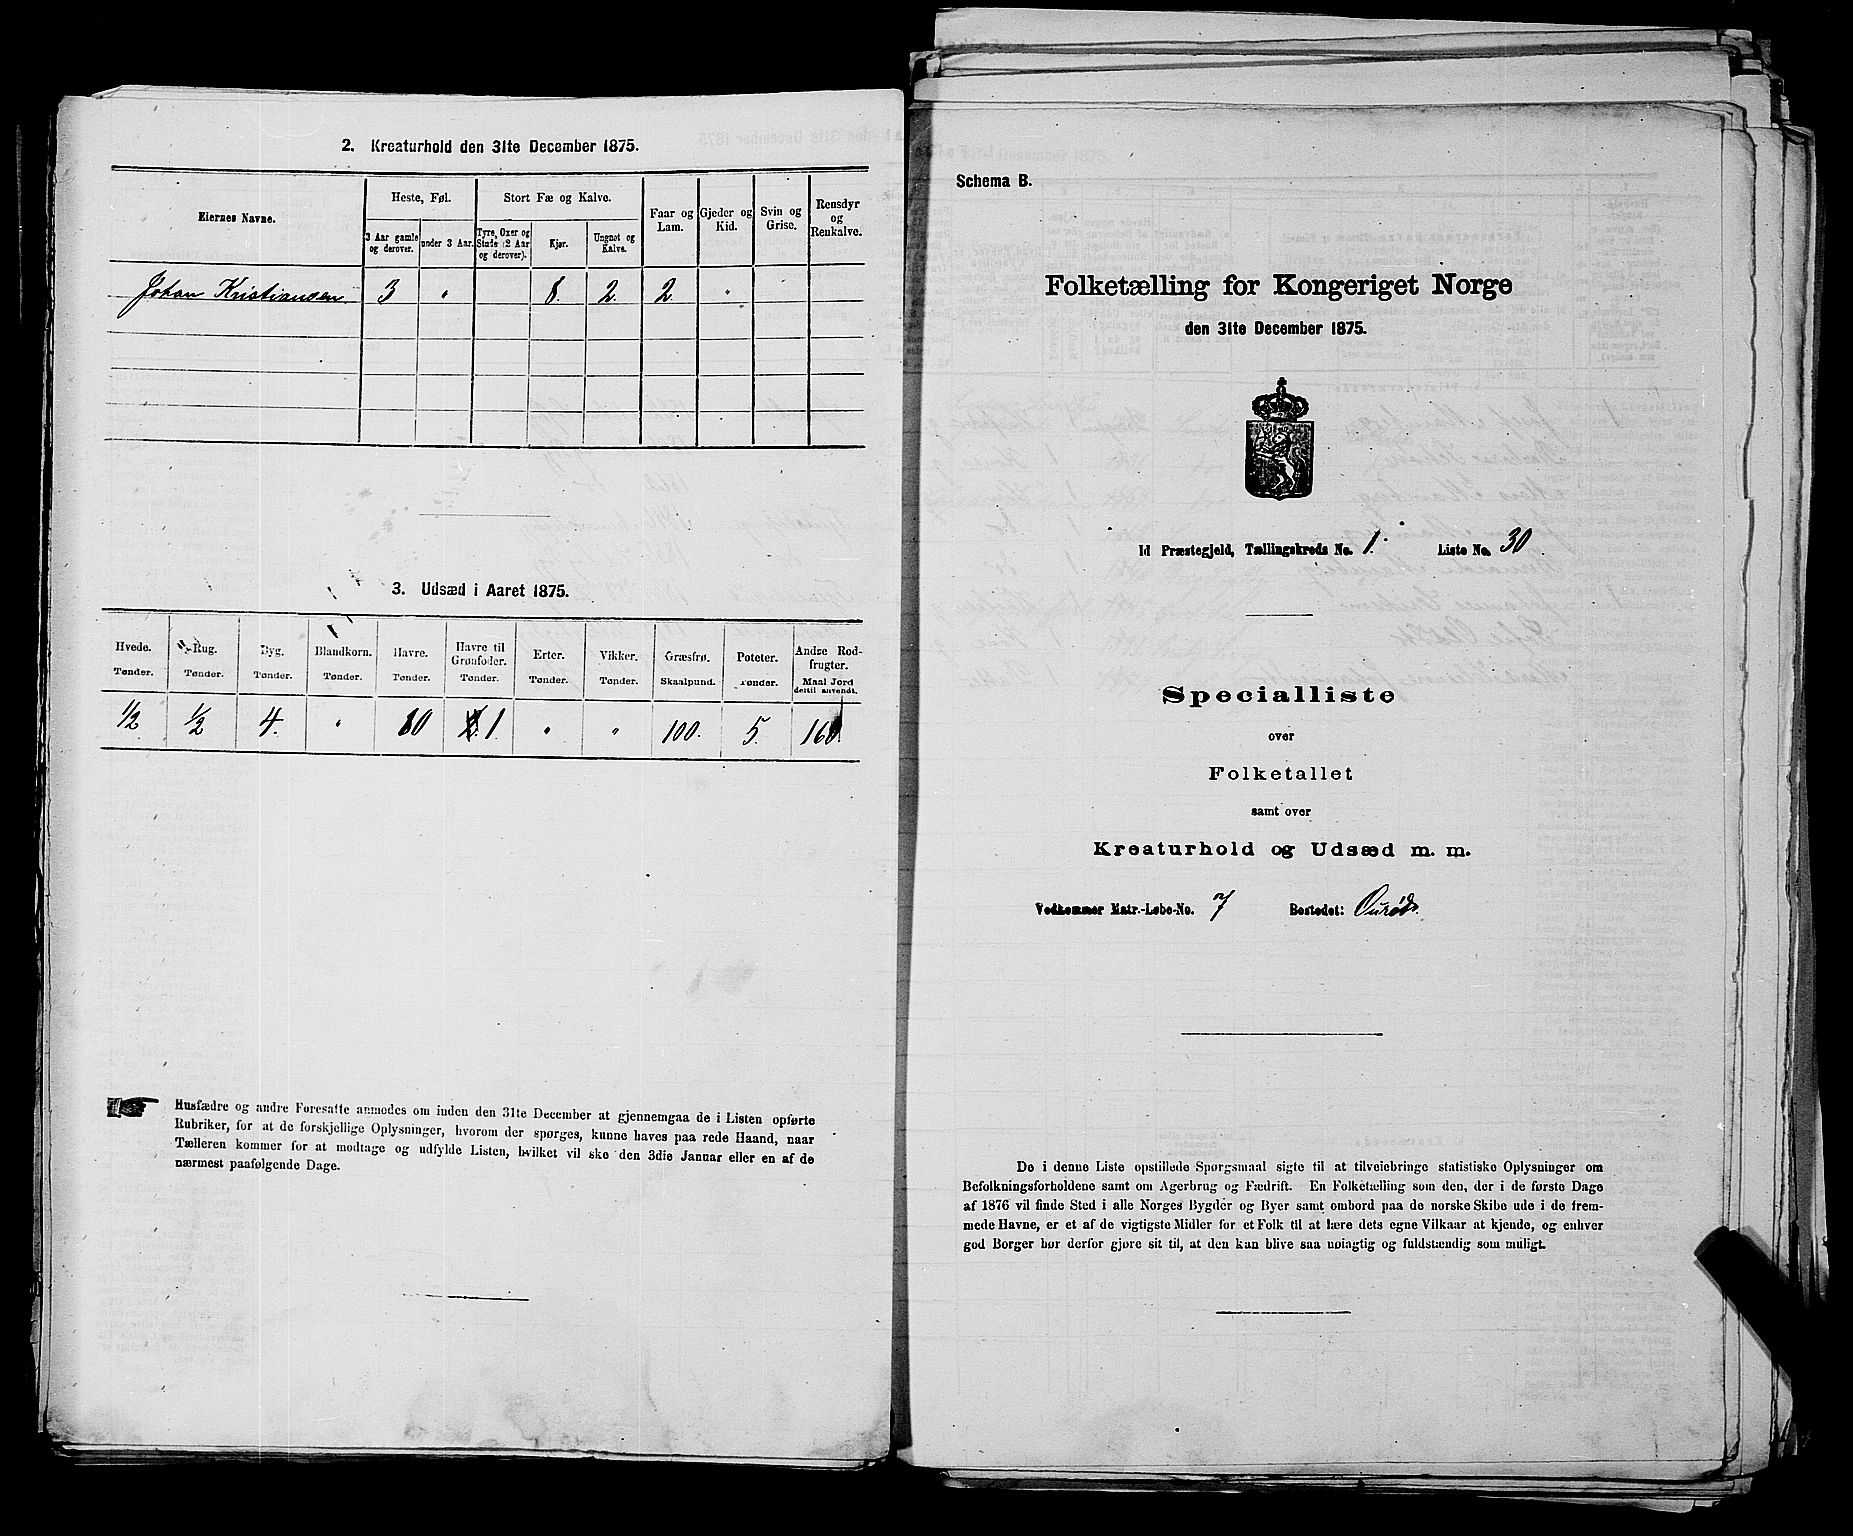 2. Kreaturhold den 31te December 1875.
Eiernes Navne.
Heste, Føl.
3 Aar gamle og derover.
under 3 Aar.
Stort Fæ og Kalve.
Tyre, Oxer og Stude (2 Aar og derover).
Kjør.
Ungnøt og Kalve.
Faar og Lam.
Gjeder og Kid.
Svin og Grise.
Rensdyr og Renkalve.
Johan Kristiansen 3 " 8. 2. 2. "
3. Udsæd i Aaret 1875.
Hvede. Rug. Byg. Blandkorn. Havre. Havre til Grønfoder. Erter. Vikker. Græsfrø. Poteter. Andre Rodfrugter.
Tønder. Tønder. Tønder. Tønder. Tønder. Tønder. Tønder. Tønder. Skaalpund. Tønder. Maal Jord dertil anvendt.
1/2 1/2 4. " 10 1 " " 100. 5.
Husfædre og andre Foresatte anmodes om inden den 31te December at gjennemgaa de i Listen opførte
Rubriker, for at de forskjellige Oplysninger, hvorom der spørges, kunne haves paa rede Haand, naar
Tælleren kommer for at modtage og udfylde Listen, hvilket vil ske den 3die Januar eller en af de
nærmest paafølgende Dage.
Schema B.
Folketælling for Kongeriget Norge
den 31te December 1875.
Id Præstegjeld, Tællingskreds No. 1. Liste No. 30.
Specialliste
over
Folketallet
samt over
Kreaturhold og Udsæd m. m.
Vedkommer Matr.-Løbe-No. 7 Bostedet:
De i denne Liste opstillede Spørgsmaal sigte til at tilveiebringe statistiske Oplysninger om
Befolkningsforholdene samt om Agerbrug og Fædrift. En Folketælling som den, der i de første Dage
af 1876 vil finde Sted i alle Norges Bygder og Byer samt ombord paa de norske Skibe ude i de frem-
mede Havne, er et af de vigtigste Midler for et Folk til at lære dets egne Vilkaar at kjende, og enhver
god Borger bør derfor gjøre sit til, at den kan blive saa nøiagtig og fuldstændig som muligt.